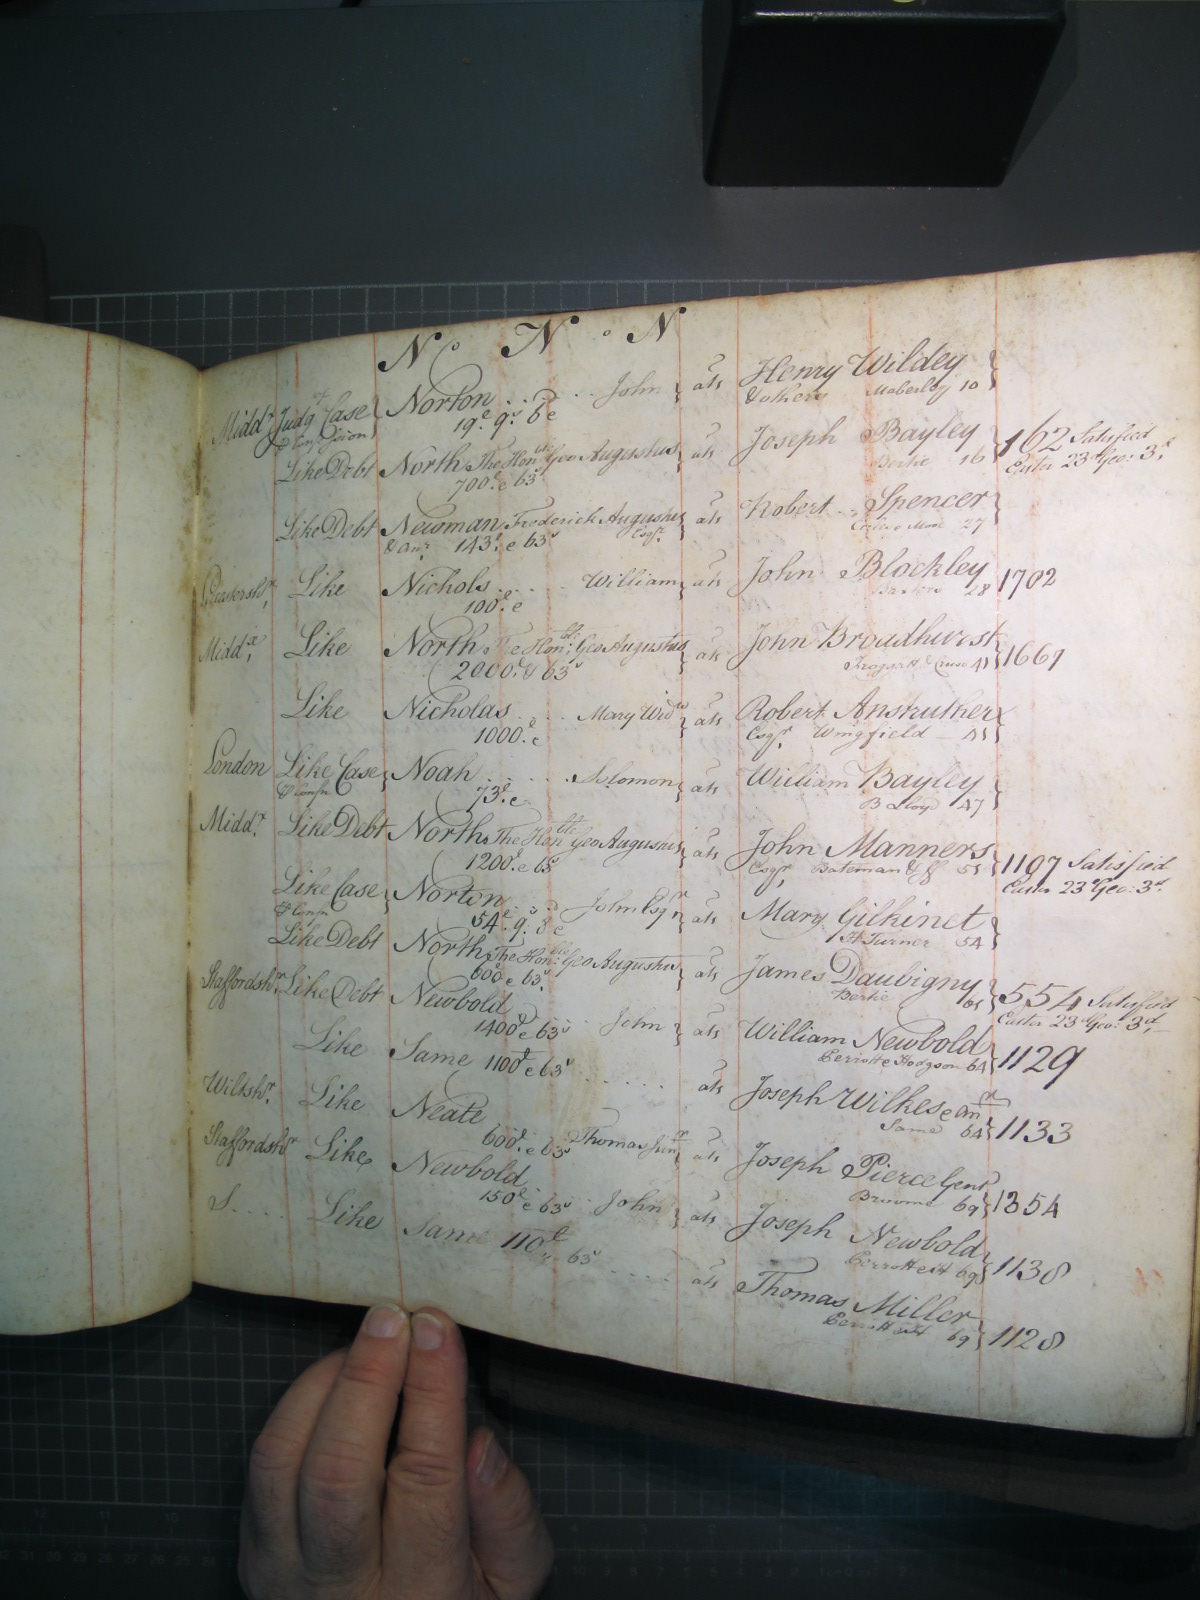 N N N
Midd.x Judg.t Case Norton John ats Henry Wildey
19.£ 9.s 6 & & others Maberley 10
Like Debt North The Hon.ble Geo Augustus ats Joseph Bayley 162 Satisfied
700.£ & 63s Bertie 16 Easter 23d Geo: 3d
Like Debt Newman Frederick Augustus ats Robert Spencer
& an.r 143.£ & 63s Esq.r 27
Like Nichols William ats John Blockley 1702
100.£ & 28
Midd.x Like North The Hon.ble Geo Augustus ats John Broadhurst 1669
2000.£ & 63s 41
Like Nicholas Mary Wid.w ats Robert Anstruther
1000.£ & Esq.r Wingfield 45
London Like Case Noah Solomon ats William Bayley
& Conf.n 73.£ & B Lloyd 47
Midd.x Like Debt North The Hon.ble Geo Augustus ats John Manners 1107 Satisfied
1200.£ & 63s Esq.r Bateman 55 Easter 23d Geo: 3d
Like Case Norton John Esq.r ats Mary Gilkinet
& Conf.n 54.£ 9.s 8 & H Turner 54
Like Debt North The Hon.ble Geo Augustus ats James Daubigny 554 Satisfied
600£ & 63s Bertie 61 Easter 23d Geo: 3d
Staffordsh.r Like Debt Newbold John ats William Newbold 1129
1400£ & 63s Hodgson 64
Like Same 1100£ & 63s ats Joseph Wilkes & an.r 1133
Same 64
Wiltsh.r Like Neate Thomas Jun.r ats Joseph Pierce Gent 1354
600£ & 63s Broome 69
Staffordsh.r Like Newbold John ats Joseph Newbold 1138
150£ & 63s 69
S Like Same 110£ 63s ats Thomas Miller 1128
69